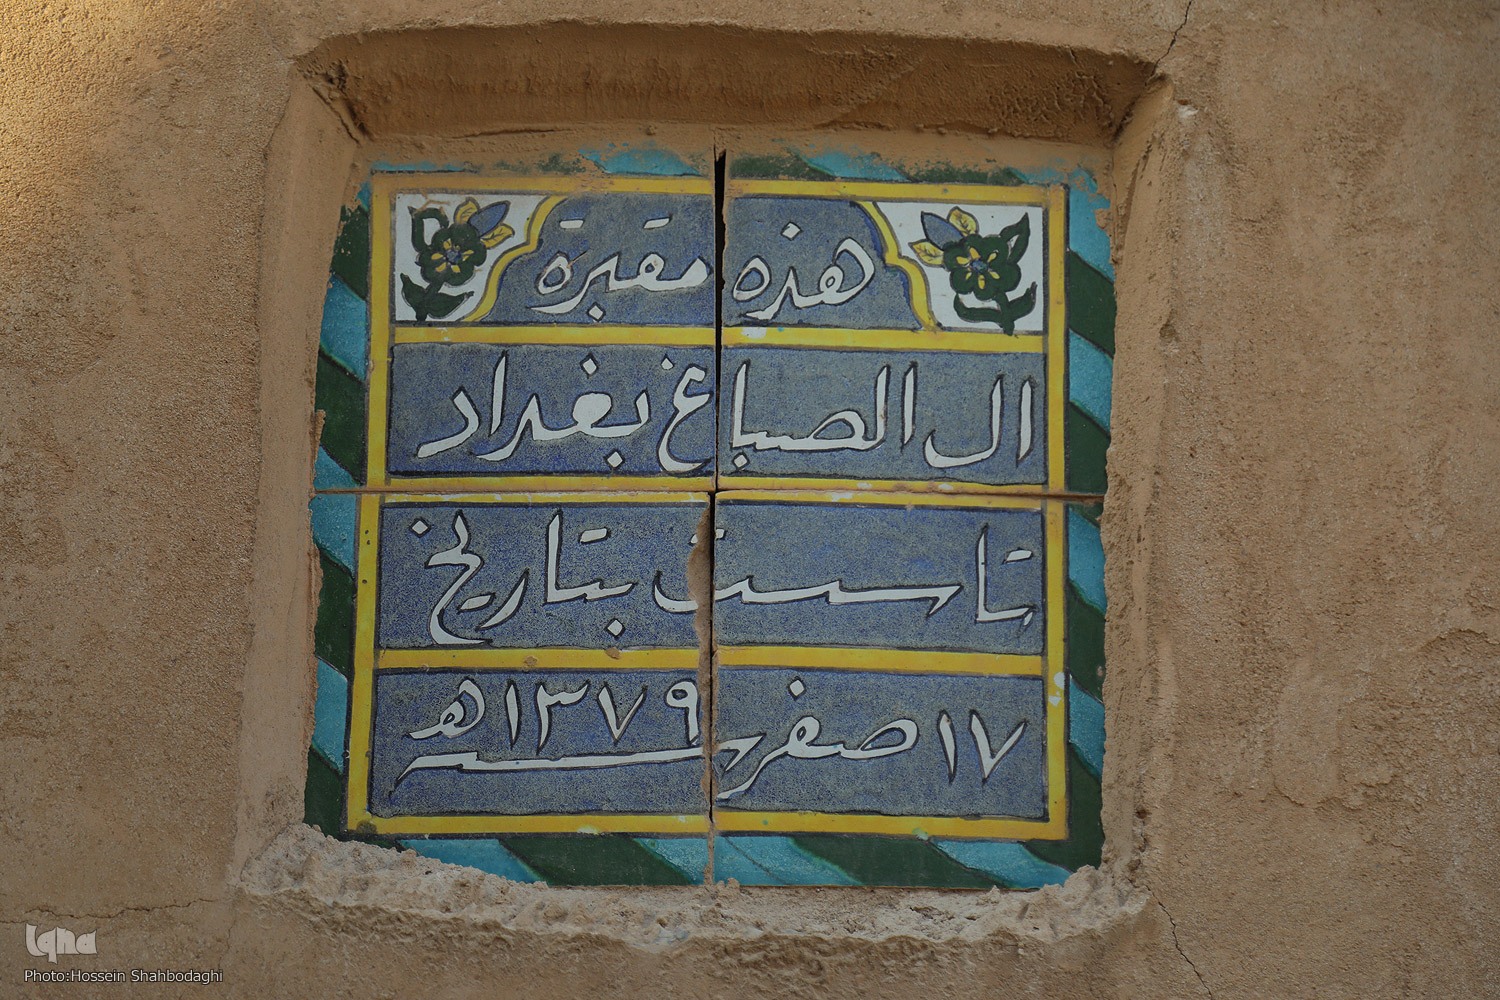 هذه مقبرة
ال الصباغ بغداد
تاسست بتاريخ
١٧ صفر سنه ١٣٧٩ هـ
Iqna
Photo:Hossein Shahbodaghi